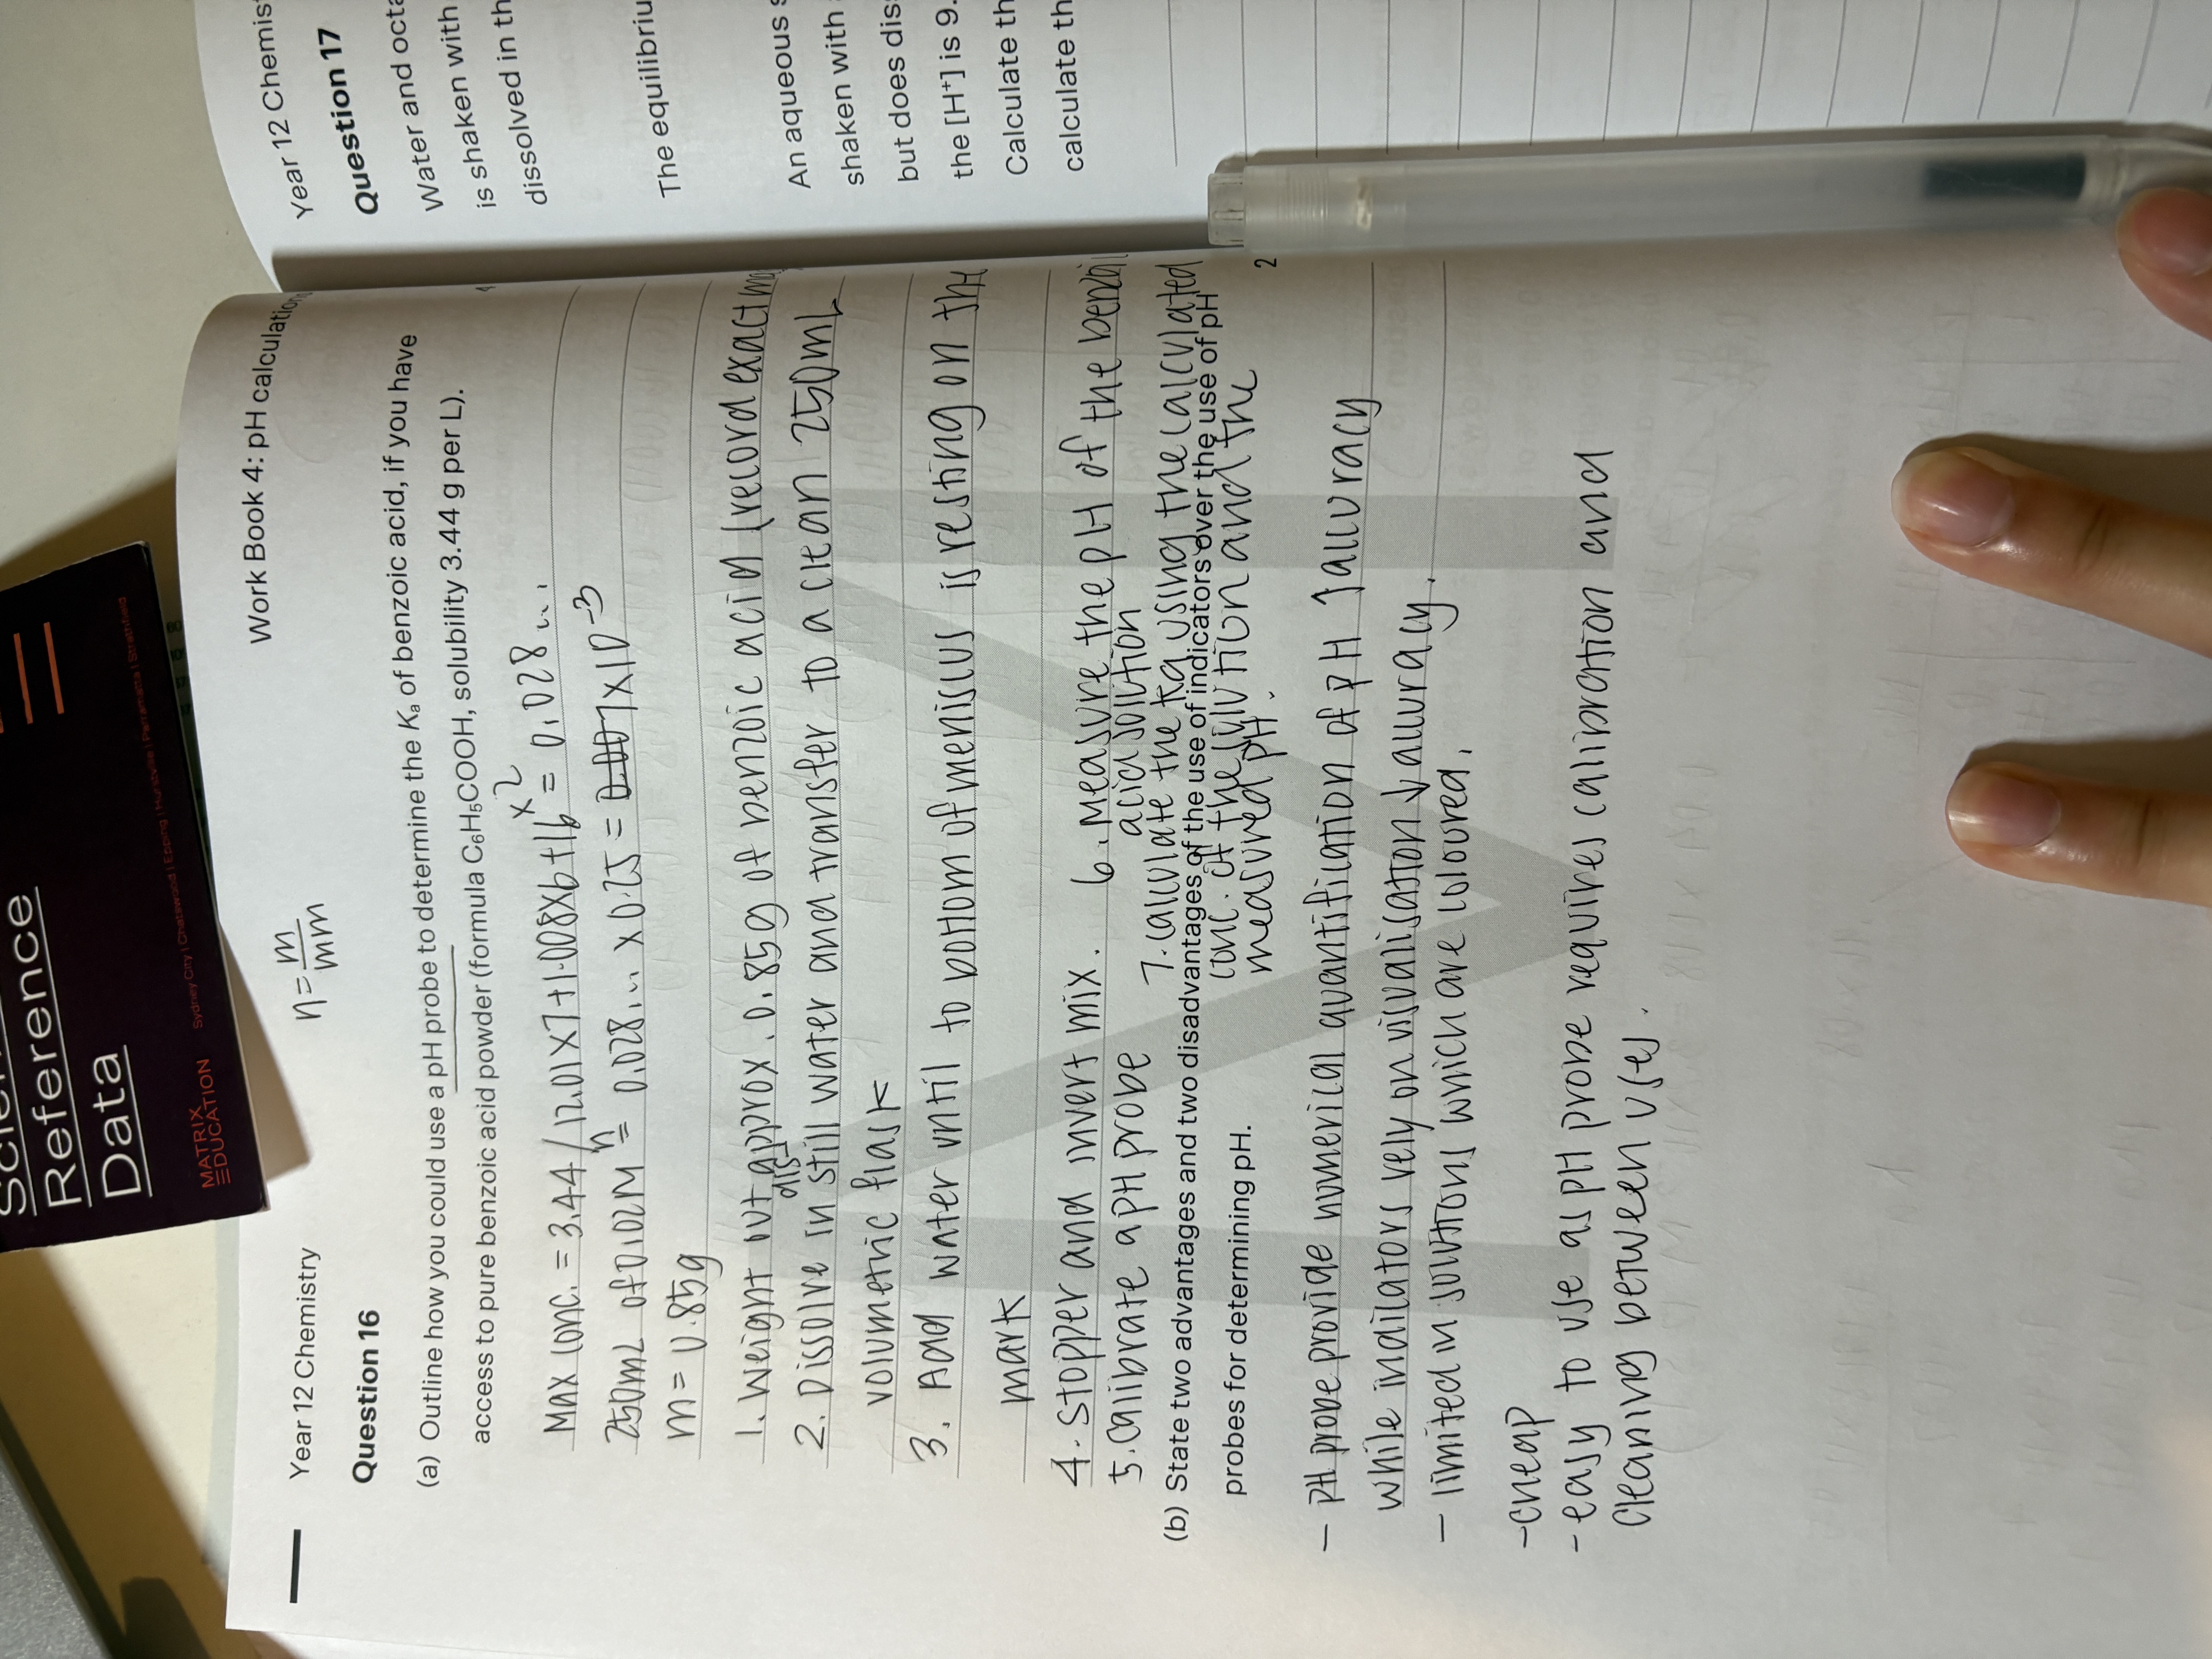 Reference
Data
MATRIX
EDUCATION
Sydney City | Chatswood | Epping | Hurstville | Parramatta | Strathfield
Year 12 Chemistry
n = m/mm
Work Book 4: pH calculation
Question 16
(a) Outline how you could use a pH probe to determine the Ka of benzoic acid, if you have
access to pure benzoic acid powder (formula C6H5COOH, solubility 3.44 g per L).
Max conc. = 3.44 / 12.01 x 7 + 1.008 x 6 + 16 x 2 = 0.028...
250mL of 0.02M n = 0.028... x 0.25 = 0.007 x 10^-3
m = 0.85g
1. Weight out approx. 0.85g of benzoic acid (record exact
2. Dissolve in distill water and transfer to a clean 250mL
volumetric flask
3. Add water until to bottom of meniscus is resting on the
mark
4. Stopper and invert mix.
5. calibrate a pH probe
6. Measure the pH of the
acid solution
7. calculate the Ka using the calculated
conc. of the solution and the
measured pH.
(b) State two advantages and two disadvantages of the use of indicators over the use of pH
probes for determining pH.
2
- pH probe provide numerical quantification of pH ↑ accuracy
while indicators rely on visualisation ↓ accuracy.
- limited in solutions which are coloured.
- cheap
- easy to use as pH probe requires calibration and
cleaning between uses.
Year 12 Chemis
Question 17
Water and octa
is shaken with
dissolved in th
The equilibriu
An aqueous s
shaken with
but does dis
the [H+] is 9.
Calculate th
calculate th